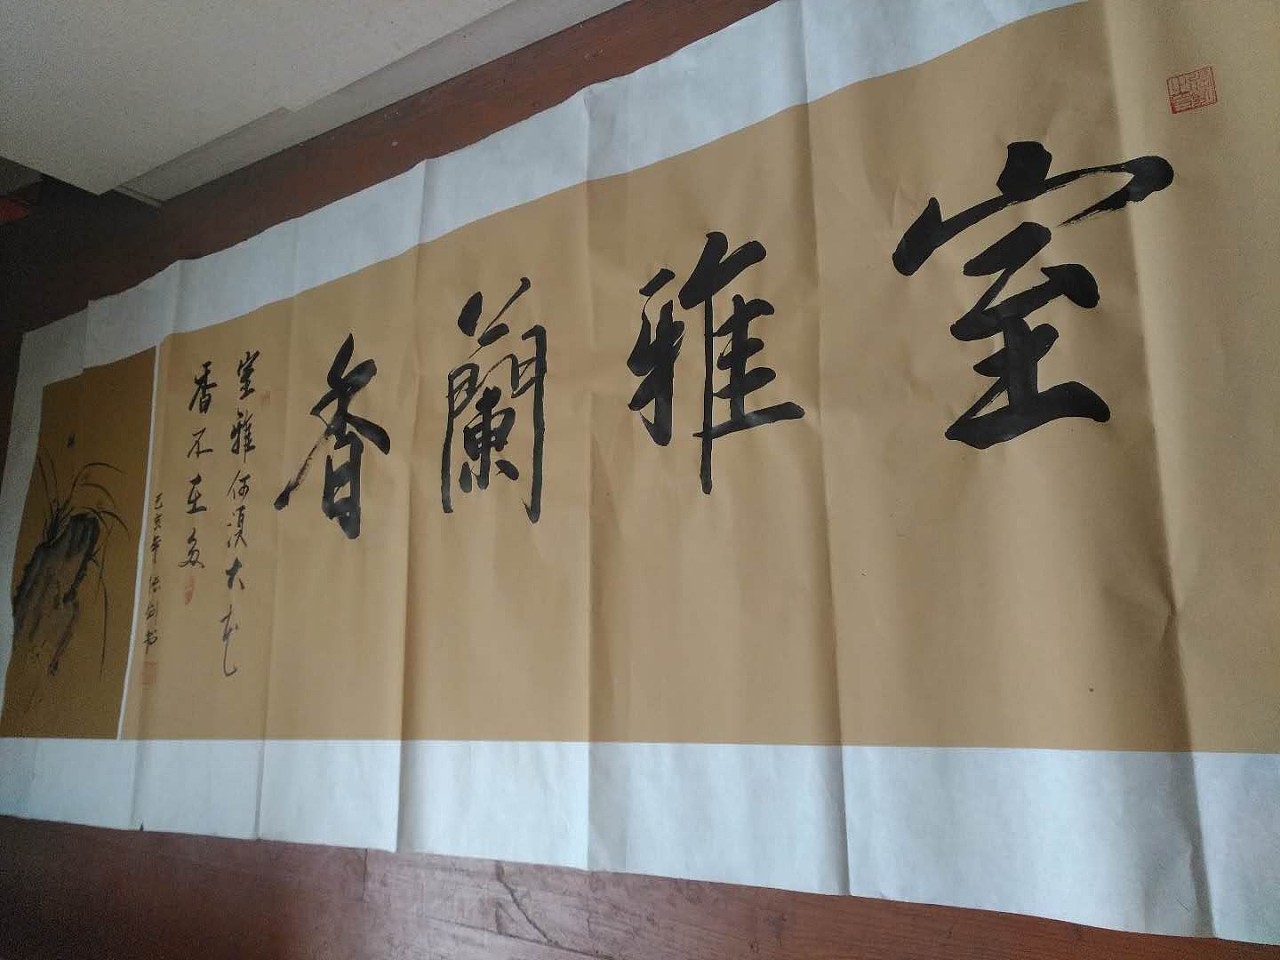 室雅蘭香
室雅何須大花
香不在多
己亥年德剑书